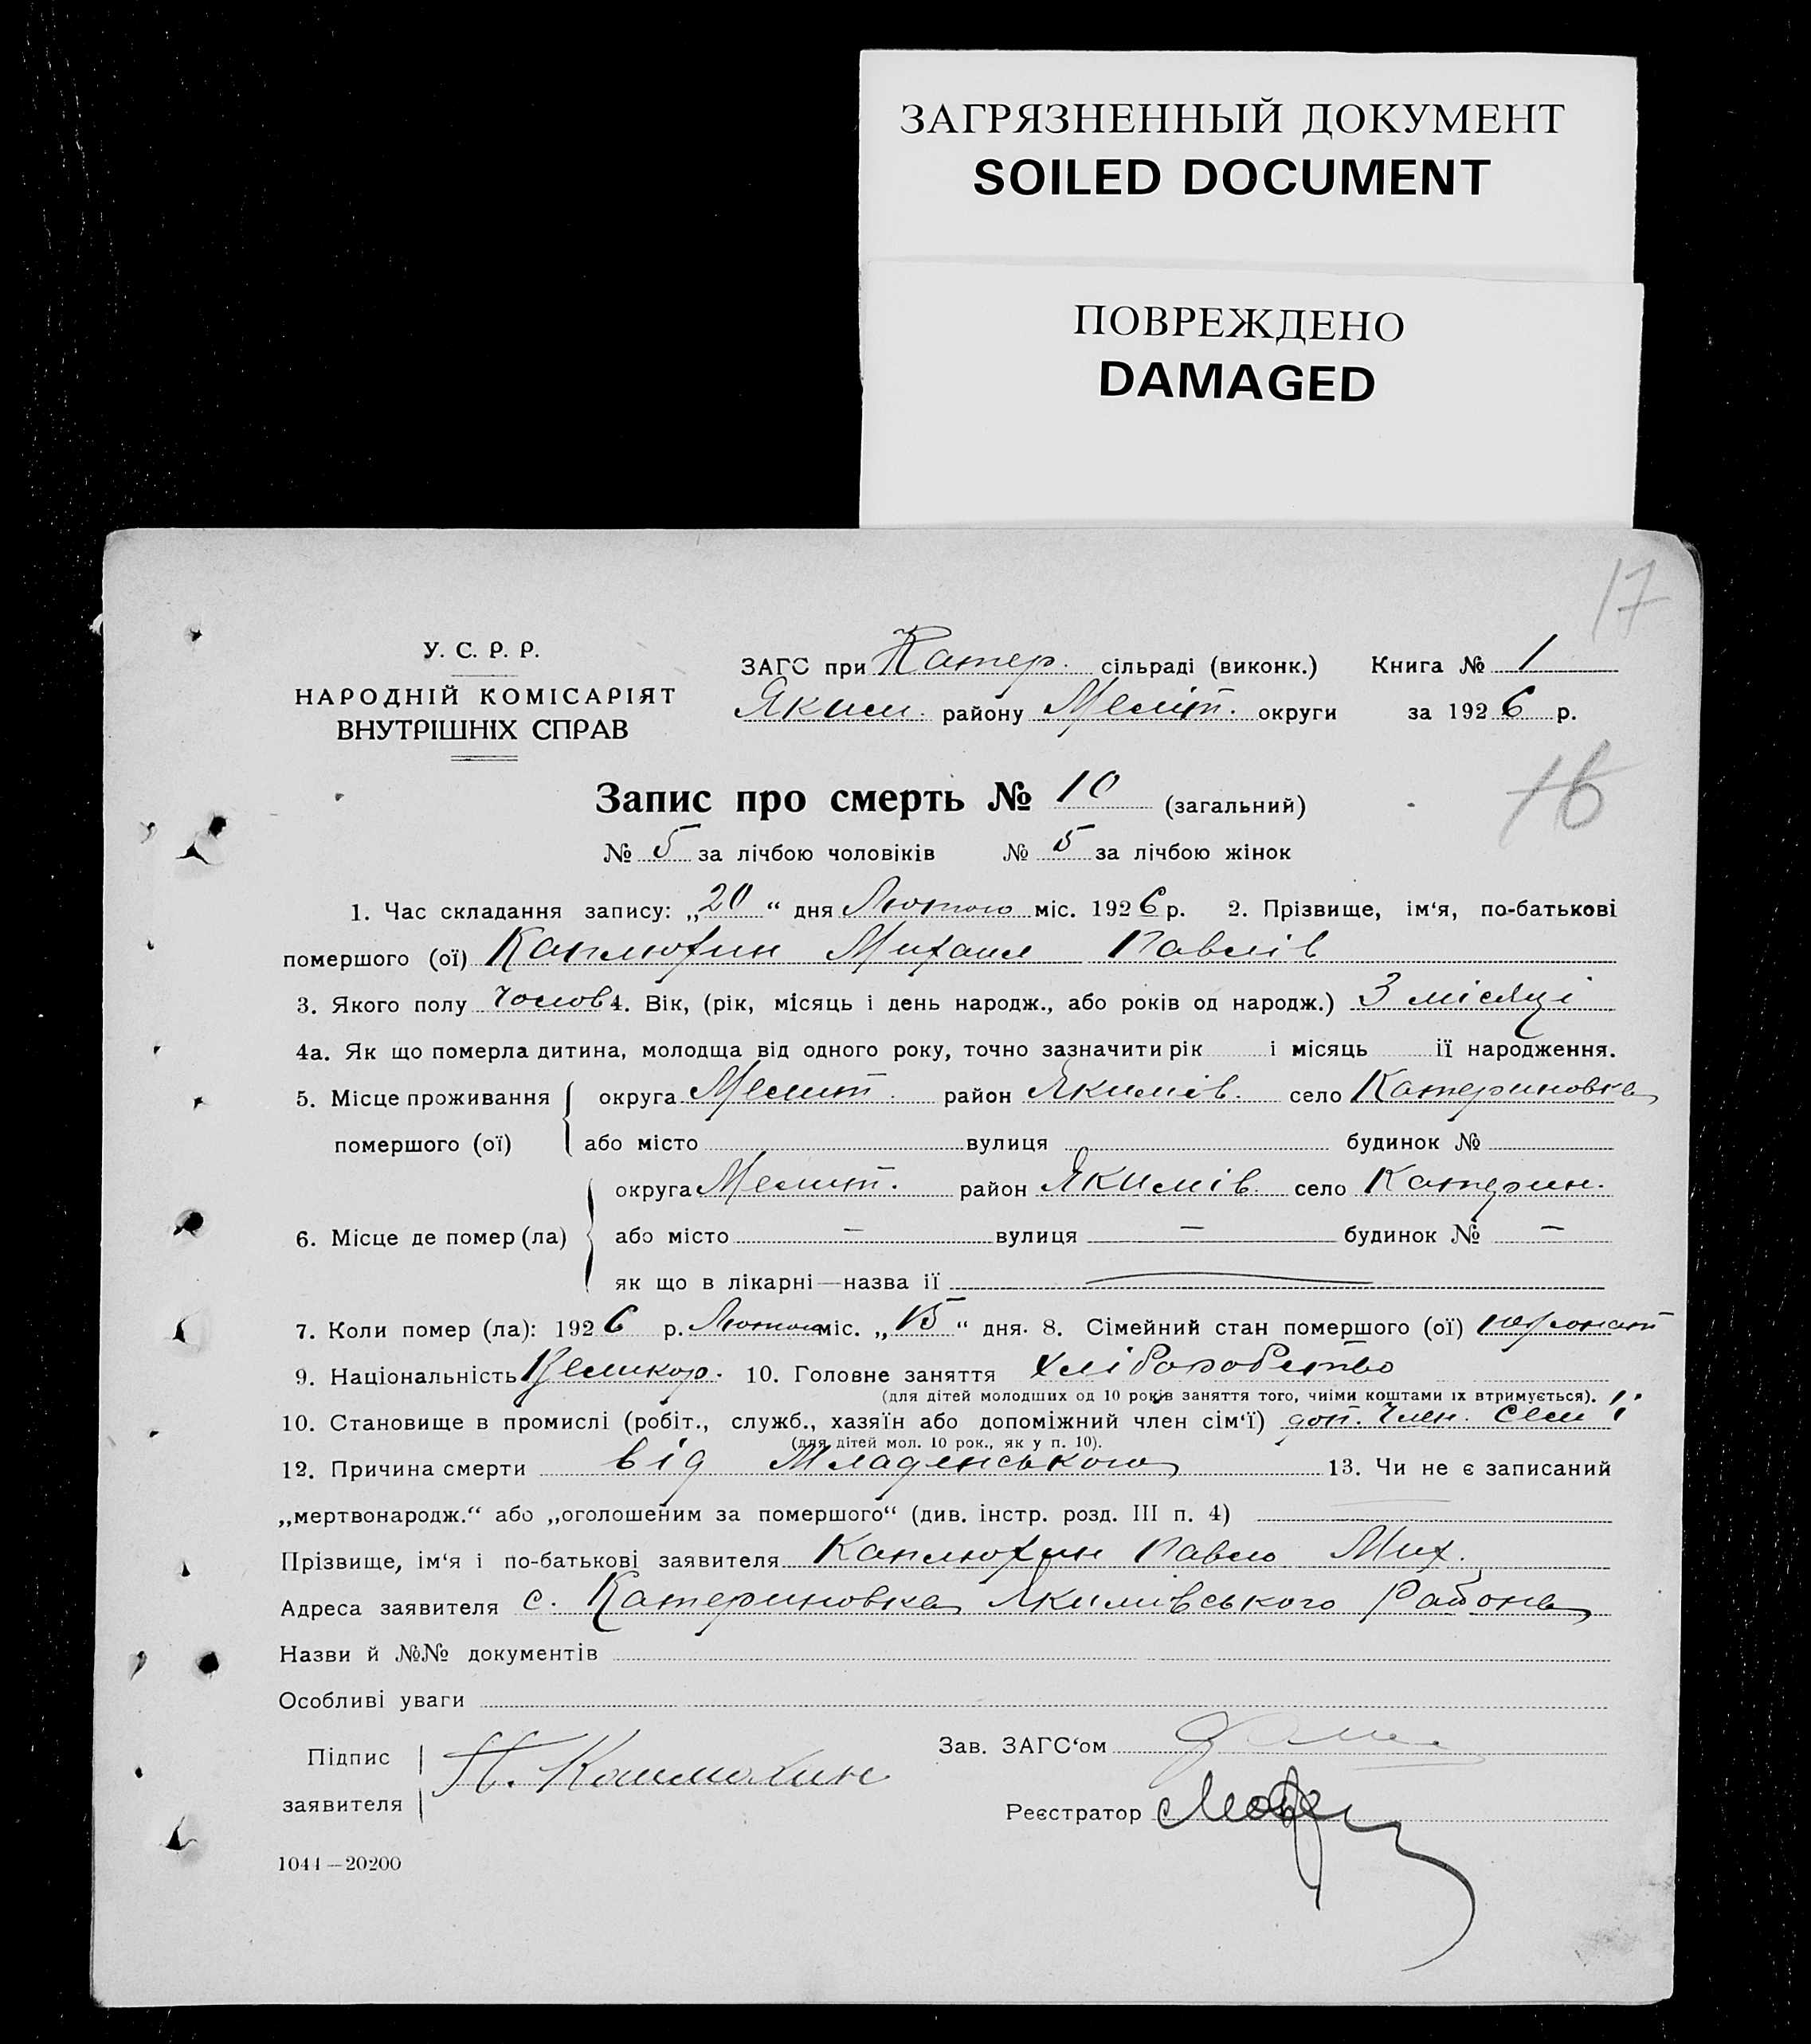 ЗАГРЯЗНЕННЫЙ ДОКУМЕНТ
SOILED DOCUMENT
ПОВРЕЖДЕНО
DAMAGED
17
У. С. Р. Р.
НАРОДНІЙ КОМІСАРІЯТ
ВНУТРІШНІХ СПРАВ
ЗАГС при Катер. сільраді (виконк.) Книга № 1
Яким. району Меліт. округи за 1926 р.
16
Запис про смерть № 10 (загальний)
№ 5 за лічбою чоловіків № 5 за лічбою жінок
1. Час складання запису: „20“ дня Лютого міс. 1926 р. 2. Прізвище, ім‘я, по-батькові
помершого (ої) Каплюхин Михаил Павлів
3. Якого полу чолов 4. Вік, (рік, місяць і день народж., або років од народж.) 3 місяці
4а. Як що померла дитина, молодща від одного року, точно зазначити рік і місяць її народження.
5. Місце проживання округа Мелит. район Якимів. село Катериновка
помершого (ої) або місто вулиця будинок №
округа Мелит. район Якимів. село Катерин.
6. Місце де помер (ла) або місто — вулиця — будинок № —
як що в лікарні—назва її
7. Коли помер (ла): 1926 р. Лютого міс. „15“ дня. 8. Сімейний стан помершого (ої)
9. Національність Великор. 10. Головне заняття Хліборобство
(для дітей молодших од 10 років заняття того, чиіми коштами їх втримується).
10. Становище в промислі (робіт., служб., хазяїн або допоміжний член сім‘ї) доп. член. семї
(для дітей мол. 10 рок., як у п. 10).
12. Причина смерти від Младенського 13. Чи не є записаний
„мертвонародж.“ або „оголошеним за помершого“ (див. інстр. розд. III п. 4)
Прізвище, ім‘я і по-батькові заявителя Каплюхин Павло Мих.
Адреса заявителя с. Катериновка Якимівського Района
Назви й №№ документів
Особливі уваги
Підпис
заявителя
П. Каплюхин
Зав. ЗАГС‘ом
Реєстратор
1044—20200